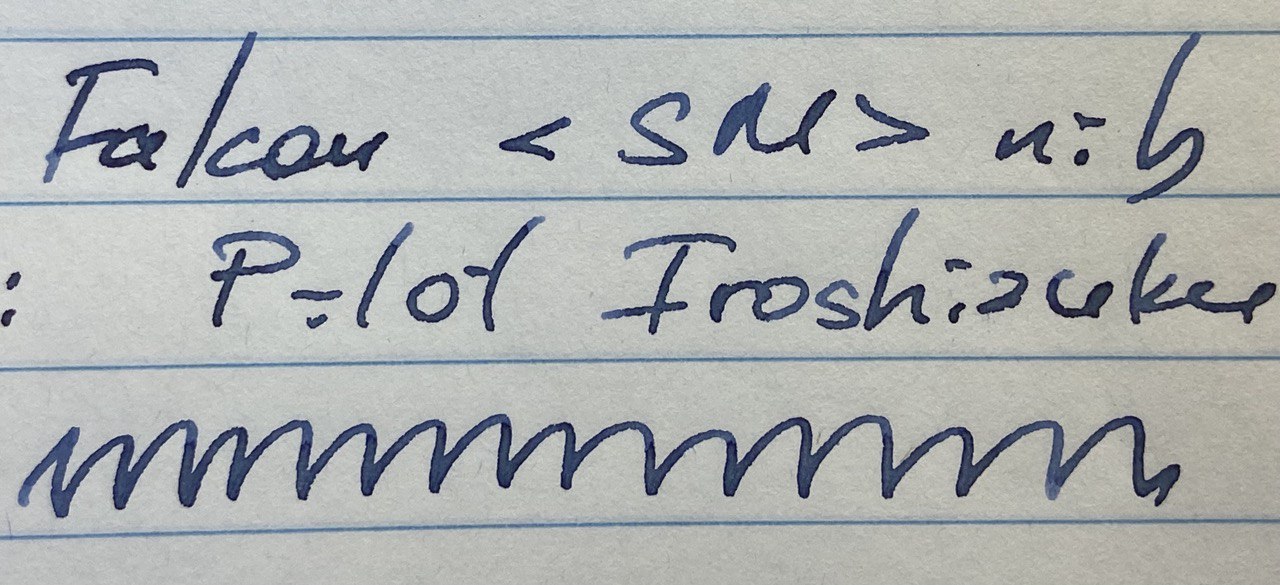 Falcon <SM> nib
: Pilot Iroshizuku